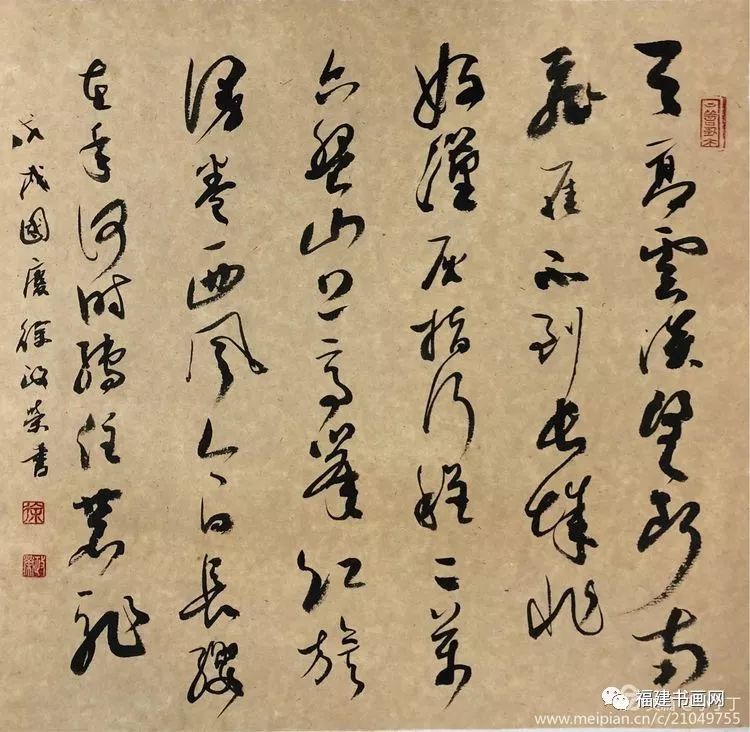 天高雲淡望断南
飛雁不到長城非
好漢屈指行程二萬
六盤山上高峯紅旗
漫卷西风今日長纓
在手何時縛住蒼龍
戊戌國慶徐政榮書
徐
福建书画网
www.meipian.cn/c/21049755